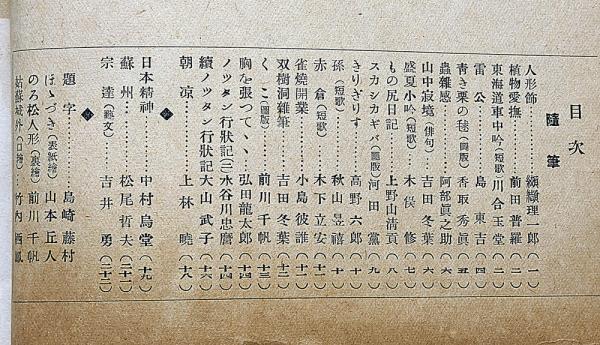 目次
隨筆
人形飾………纐纈理一郎(一)
植物愛撫………前田普羅(二)
東海道車中吟(短歌)川合玉堂(二)
雷公………島東吉(四)
靑き栗の毬(圖版)香取秀眞(五)
蟲雜感………阿部眞之助(六)
山中寂境(俳句)吉田冬葉(六)
盛夏小吟(短歌)木俣修(七)
もの尻日記………上野山淸貢(八)
スカシカギバ(圖版)河田黨(九)
きりぎりす………高野六郎(十)
孫(短歌)………秋山昱禧(十)
赤倉(短歌)木下立安(十一)
雀燒開業………小島彼誰(十二)
双樹洞雜筆………吉田冬葉(十二)
くこ(圖版)………前川千帆(十三)
胸を張つて、、弘田龍太郎(十四)
ノツタン行狀記(三)水谷川忠麿(十四)
續ノツタン行狀記大山武子(十六)
朝凉………上林曉(十八)
◆
日本精神………中村烏堂(十九)
蘇州………松尾哲夫(二十一)
宗達(藝文)………吉井勇(二十二)
◆
題字………島崎藤村
ほゝづき(表紙繪)山本丘人
のろ松人形(裏繪)前川千帆
姑蘇城外(口繪)竹內栖鳳